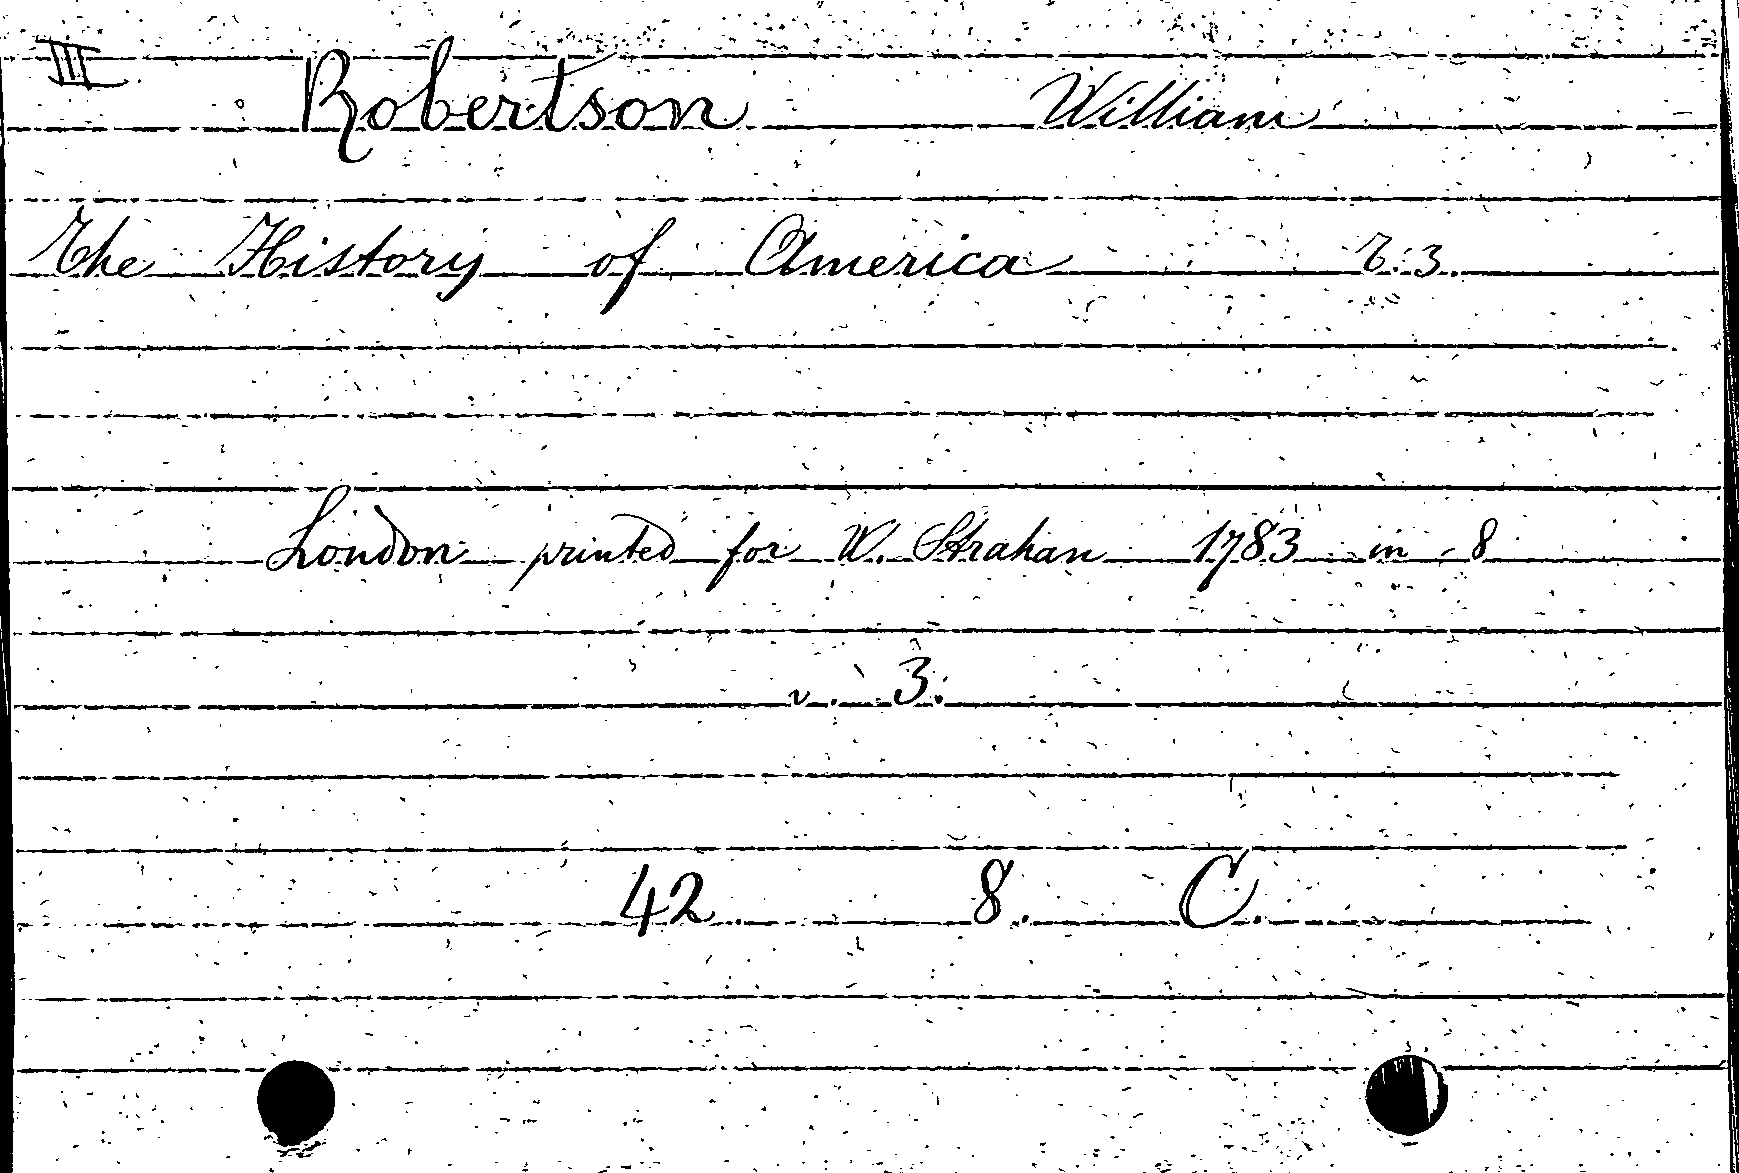 III
Robertson William
The History of America T. 3.
London printed for W. Strahan 1783 in - 8
v. 3.
42 8. C.